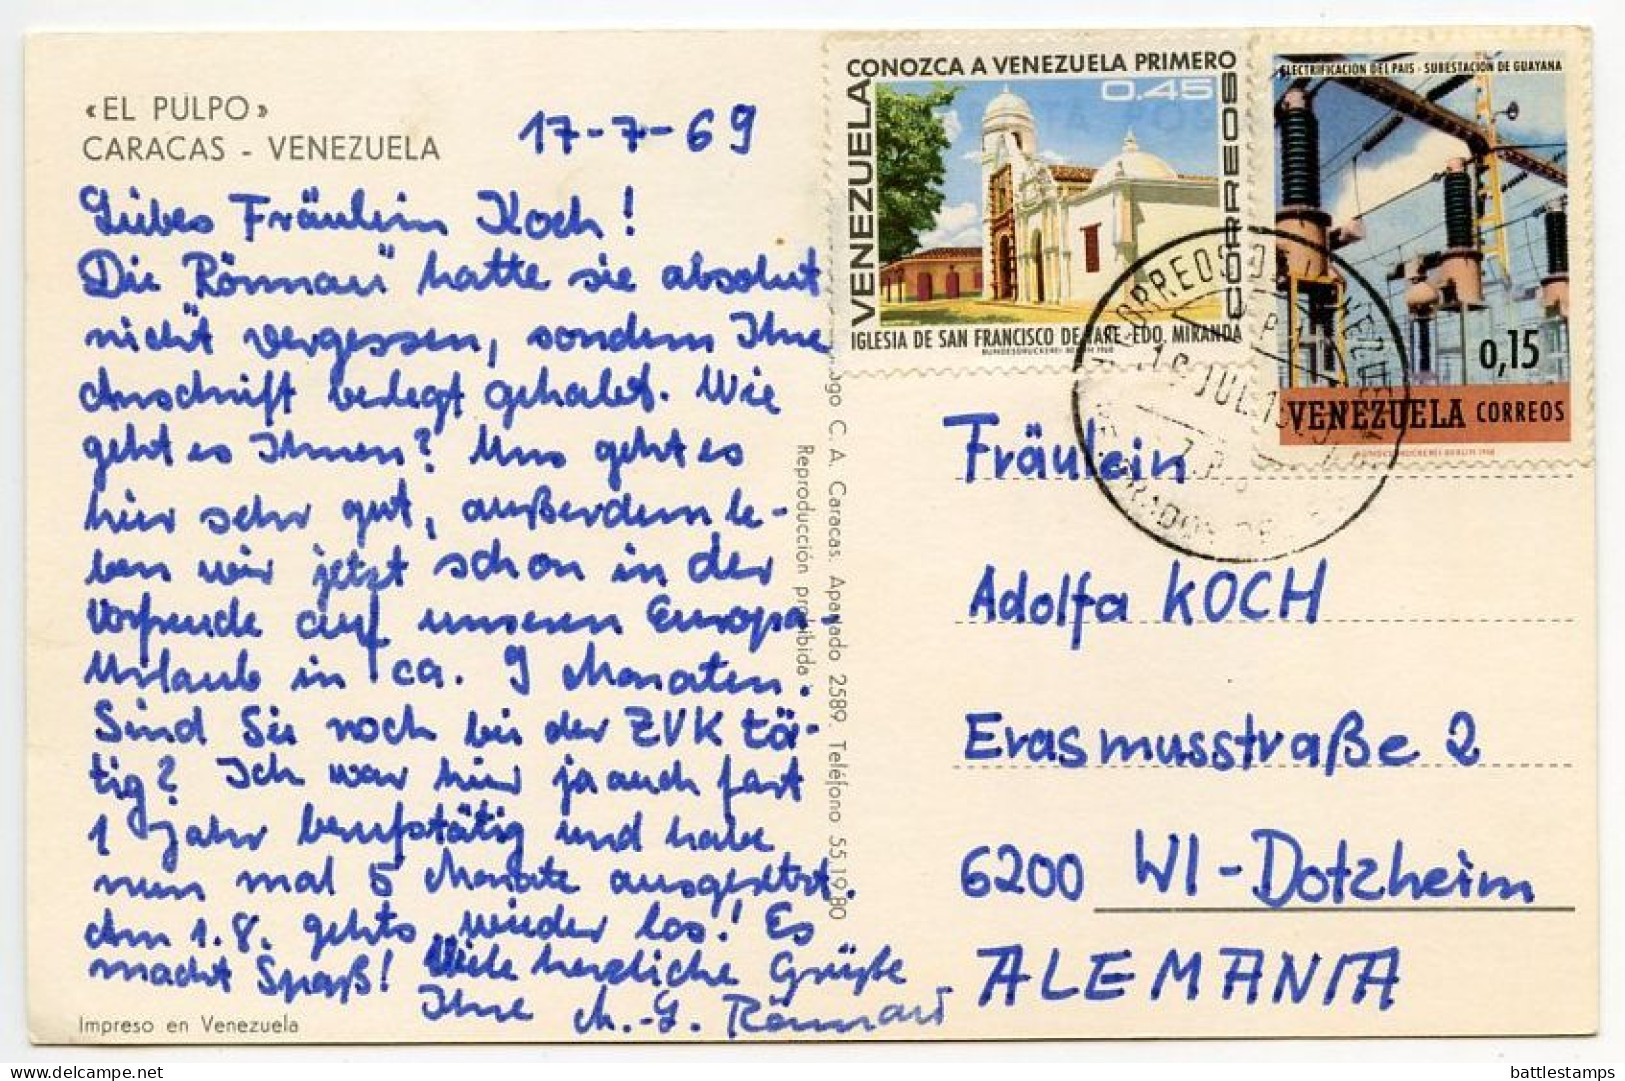 «EL PULPO»
CARACAS - VENEZUELA
17-7-69
Liebes Fräulein Koch!
Die Rönnau" hatte sie absolut
nicht vergessen, sondern Ihre
Anschrift verlegt gehabt. Wie
geht es Ihnen? Uns geht es
hier sehr gut, außerdem le-
ben wir jetzt schon in der
Vorfreude auf unseren Europa-
Urlaub in ca. 9 Monaten.
Sind Sie noch bei der ZVK tä-
tig? Ich war hier ja auch fast
1 Jahr berufstätig und habe
nun mal 5 Monate ausgesetzt.
Am 1.8. gehts wieder los! Es
macht Spaß! Viele herzliche Grüße
Ihre M.-L. Rönnau
Impreso en Venezuela
C. A. Caracas. Apartado 2589. Teléfono 55.19.80
Reproducción prohibida
CONOZCA A VENEZUELA PRIMERO
0.45
VENEZUELA
CORREOS
IGLESIA DE SAN FRANCISCO DE YARE-EDO. MIRANDA
BUNDESDRUCKEREI BERLIN 1968
ELECTRIFICACION DEL PAIS - SUBESTACION DE GUAYANA
0,15
VENEZUELA CORREOS
BUNDESDRUCKEREI BERLIN 1968
CORREOS DE VENEZUELA
JUL
Fräulein
Adolfa KOCH
Erasmusstraße 2
6200 WI-Dotzheim
ALEMANIA
battlestamps